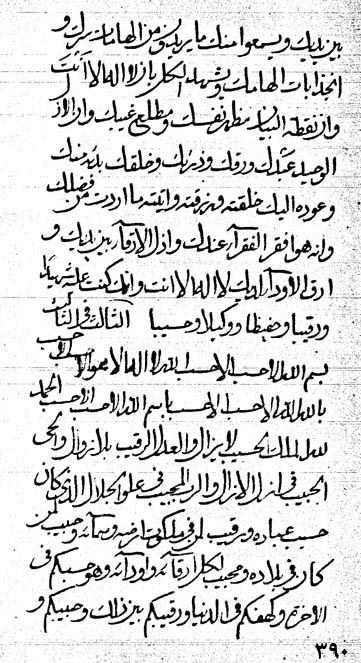 بين يديك ويسمعوا منك ما يريدون من الهاماتك
انجذابات الهامك ويشهد الكل بان لا اله الا انت
وان نقطة البيان مظهر نفسك ومطلع غيبك وان الاول
الوحيد عبدك ورقك وذرئك وخلقك بدئه منك
وعوده اليك خلقته ورزقته واتيته ما اردت من فضلك
وانه هو افقر الفقرآء عندك واذل الارقآء بين يديك و
الاودآء لديك لا اله الا انت وانك كنت على
ورقيبا وحفيظا ووكيلا وحسيبا الثالث في الثالث
بسم الله الاحسب الاحسب الله لا اله الا هو
بالله الله الاحسب الاحسب باسم الله الاحسب الاحسب الحمد
لله الملك الحسيب لايزال والعدل الرقيب بلا زوال والحي
الحبيب في ازل الازال والرب المجيب في علو الجلال الذي كان
حسيب عباده ورقيب لمن في ملكوت ارضه وسمآئه وحبيب لمن
كان في بلاده ومجيب لكل ارقآئه واودآئه وهو حسبكم في
الاخرة وكهفكم في الدنيا ورقيبكم بين ذلك وحبيبكم و
٣٩٠